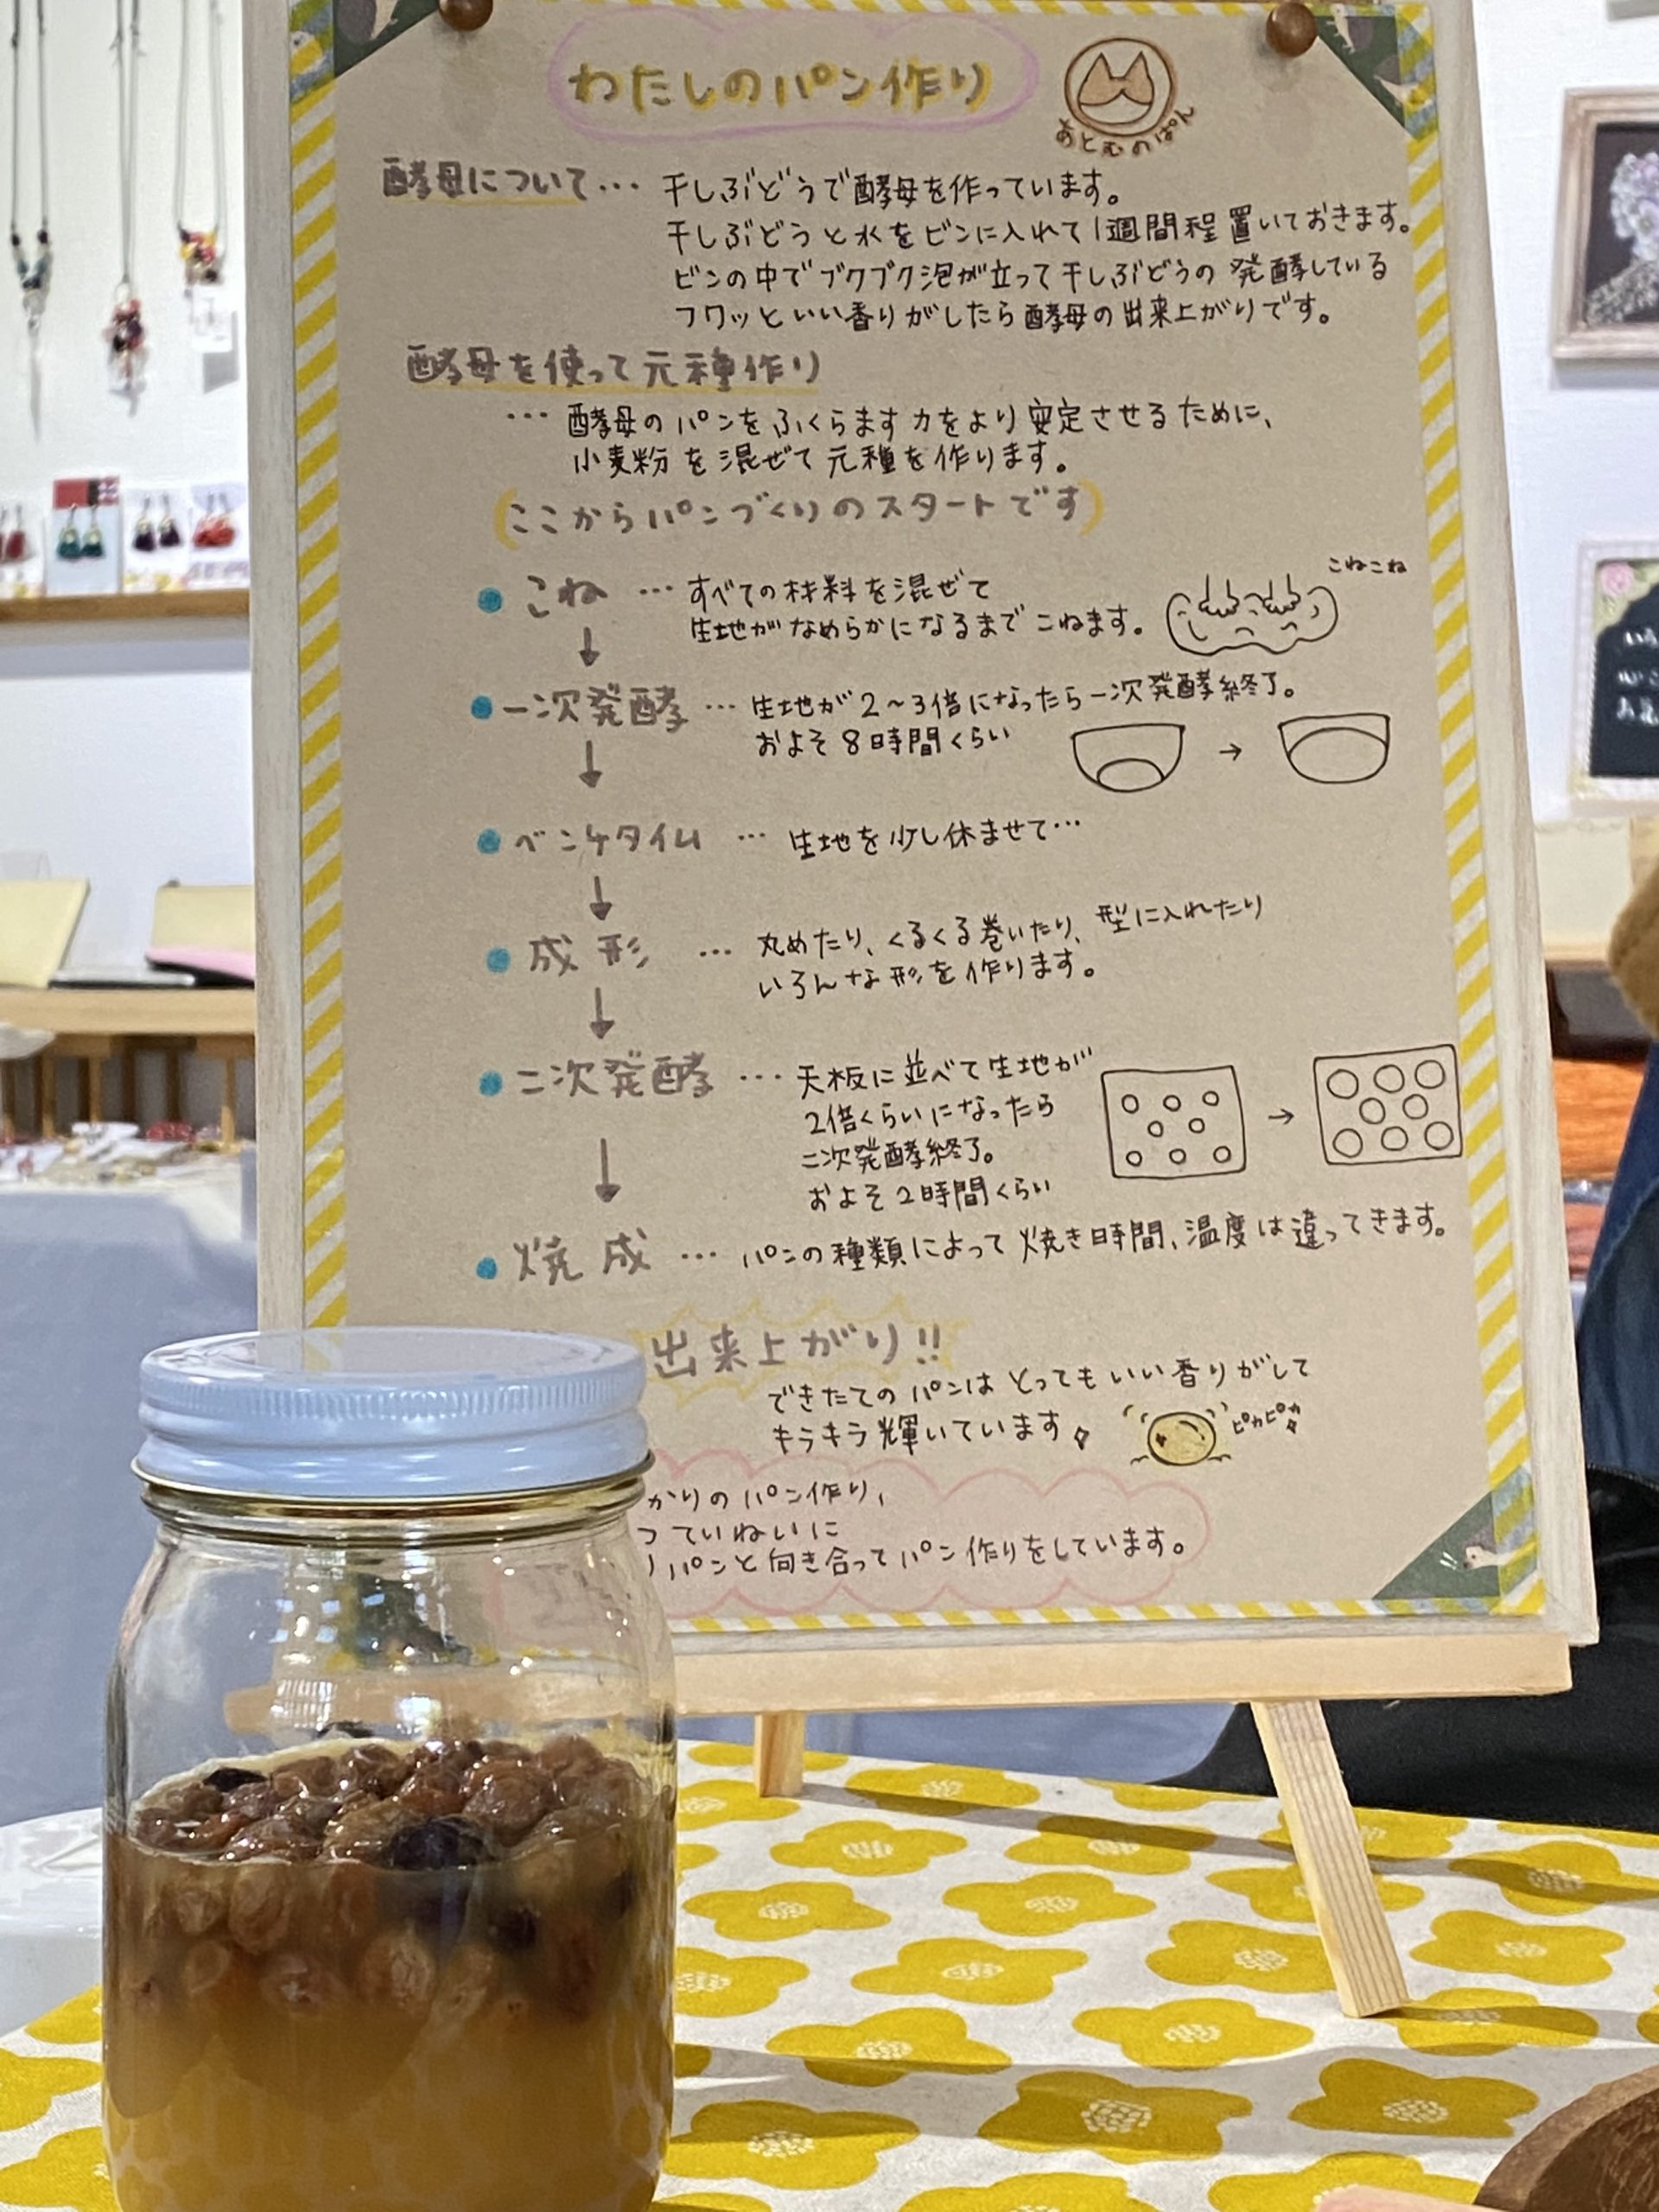 わたしのパン作り
あとむのぱん
酵母について… 干しぶどうで酵母を作っています。
干しぶどうと水をビンに入れて1週間程置いておきます。
ビンの中でブクブク泡が立って干しぶどうの発酵している
フワッといい香りがしたら酵母の出来上がりです。
酵母を使って元種作り
…酵母のパンをふくらます力をより安定させるために、
小麦粉を混ぜて元種を作ります。
(ここからパンづくりのスタートです)
こね …すべての材料を混ぜて
生地がなめらかになるまでこねます。
こねこね
↓
一次発酵 …生地が2〜3倍になったら一次発酵終了。
およそ8時間くらい
→
↓
ベンチタイム …生地を少し休ませて…
↓
成形 …丸めたり、くるくる巻いたり、型に入れたり
いろんな形を作ります。
↓
二次発酵 …天板に並べて生地が
2倍くらいになったら
二次発酵終了。
およそ2時間くらい
→
↓
焼成 …パンの種類によって焼き時間、温度は違ってきます。
出来上がり!!
できたてのパンはとってもいい香りがして
キラキラ輝いています
ピカピカ
かりのパン作り、
つていねいに
パンと向き合ってパン作りをしています。